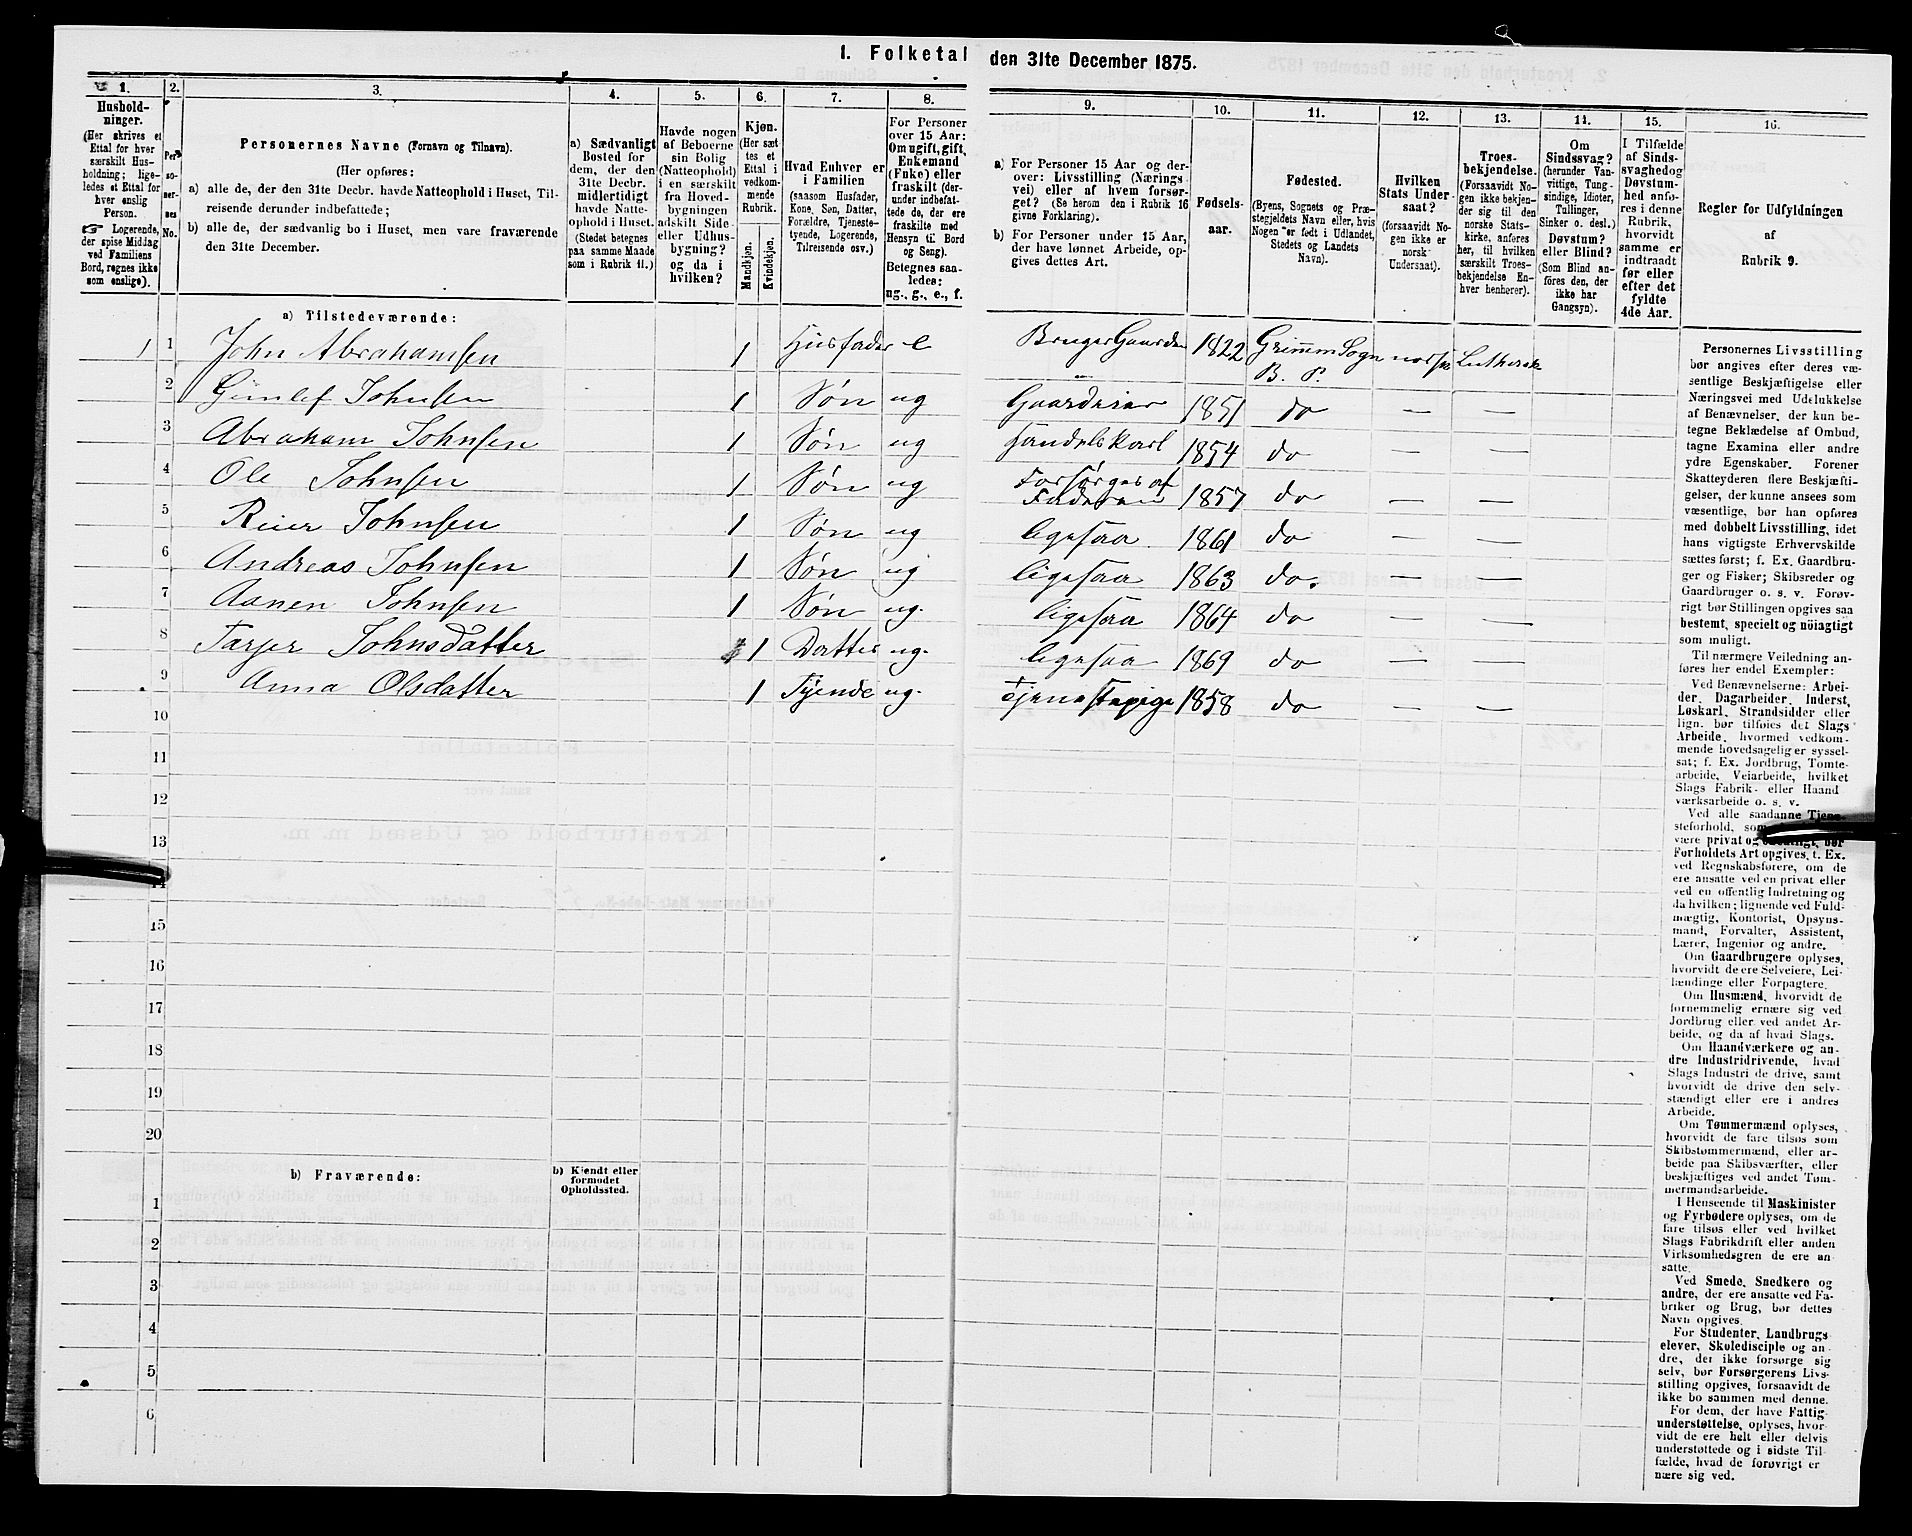 1. Folketal den 31te December 1875.
1. 2. 3. 4. 5. 6. 7. 8. 9. 10. 11. 12. 13. 14. 15. 16.
Hushold-
ninger.
(Her skrives et
Ettal for hver
særskilt Hus-
holdning; lige-
ledes et Ettal for
hver enslig
Person.
Logerende,
der spise Middag
ved Familiens
Bord, regnes ikke
som enslige).
Per-
so-
ner-
nes
No.
Personernes Navne (Fornavn og Tilnavn).
(Her opføres:
a) alle de, der den 31te Decbr. havde Natteophold i Huset, Til-
reisende derunder indbefattede;
b) alle de, der sædvanlig bo i Huset, men vare fraværende
den 31te December.
a) Sædvanligt
Bosted for
dem, der den
31te Decbr.
midlertidigt
havde Natte-
ophold i Huset.
(Stedet betegnes
paa samme Maade
som i Rubrik 11.)
Havde nogen
af Beboerne
sin Bolig
(Natteophold)
i en særskilt
fra Hoved-
bygningen
adskilt Side-
eller Udhus-
bygning?
og da i
hvilken?
Kjøn.
(Her sæt-
tes et
Ettal i
vedkom-
mende
Rubrik.
Mandkjøn.
Kvindekjøn.
Hvad Enhver er
i Familien
(saasom Husfader,
Kone, Søn, Datter,
Forældre, Tjeneste-
tyende, Logerende,
Tilreisende osv.)
For Personer
over 15 Aar:
Om ugift, gift,
Enkemand
(Enke) eller
fraskilt (der-
under indbefat-
tede de, der ere
fraskilte med
Hensyn til Bord
og Seng).
Betegnes saa-
ledes:
ug., g., e., f.
a) For Personer 15 Aar og der-
over: Livsstilling (Nærings-
vei) eller af hvem forsør-
get? (Se herom den i Rubrik 16
givne Forklaring).
b) For Personer under 15 Aar,
der have lønnet Arbeide, op-
gives dettes Art.
Fødsels-
aar.
Fødested.
(Byens, Sognets og Præ-
stegjeldets Navn eller, hvis
Nogen er født i Udlandet,
Stedets og Landets
Navn).
Hvilken
Stats Under-
saat?
(forsaavidt No-
gen ikke er
norsk
Undersaat).
Troes-
bekjendelse.
(Forsaavidt No-
gen ikke bekjen-
der sig til den
norske Stats-
kirke, anføres
her, til hvilken
særskilt Troes-
bekjendelse En-
hver henhører).
Om
Sindssvag?
(herunder Van-
vittige, Tung-
sindige, Idioter,
Tullinger,
Sinker o. desl.)
Døvstum?
eller Blind?
(Som Blind an-
føres den, der
ikke har
Gangsyn).
I Tilfælde
af Sinds-
svaghed og
Døvstum-
hed anfø-
res i denne
Rubrik,
hvorvidt
samme er
indtraadt
før eller
efter det
fyldte
4de Aar.
Regler for Udfyldningen
af
Rubrik 9.
a) Tilstedeværende:
1 1 John Abrahamsen 1 Husfader e Bruger Gaarden 1822 Grimm Sogn B. P. norsk Luthersk
2 Gunlef Johnsen 1 Søn ug 1851 do — —
3 Abraham Johnsen 1 Søn ug Handelskarl 1854 do — —
4 Ole Johnsen 1 Søn ug Forsørges af Faderen 1857 do — —
5 Reier Johnsen 1 Søn ug ligesaa 1861 do — —
6 Andreas Johnsen 1 Søn ug ligesaa 1863 do. — —
7 Aanen Johnsen 1 Søn ug. ligesaa 1864 do — —
8 Tarjer Johnsdatter 1 Datter ug. ligesaa 1869 do — —
9 Anna Olsdatter 1 Tyende ug. Tjenestepige 1858 do — —
10
11
12
13
14
15
16
17
18
19
20
b) Fraværende:
b) Kjendt eller
formodet
Opholdssted.
1
2
3
4
5
6
Personernes Livsstilling
bør angives efter deres væ-
sentlige Beskjæftigelse eller
Næringsvei med Udelukkelse
af Benævnelser, der kun be-
tegne Beklædelse af Ombud,
tagne Examina eller andre
ydre Egenskaber. Forener
Skatteyderen flere Beskjæfti-
gelser, der kunne ansees som
væsentlige, bør han opføres
med dobbelt Livsstilling, idet
hans vigtigste Erhvervskilde
sættes først; f. Ex. Gaardbru-
ger og Fisker; Skibsreder og
Gaardbruger o. s. v. Forøv-
rigt bør Stillingen opgives saa
bestemt, specielt og nöiagtigt
som muligt.
Til nærmere Veiledning an-
føres her endel Exempler:
Ved Benævnelserne: Arbei-
der, Dagarbeider, Inderst,
Løskarl, Strandsidder eller
lign. bør tilføies det Slags
Arbeide, hvormed vedkom-
mende hovedsagelig er syssel-
sat; f. Ex. Jordbrug, Tomte-
arbeide, Veiarbeide, hvilket
Slags Fabrik- eller Haand
værksarbeide o. s. v.
Ved alle saadanne Tjene-
steforhold, som
være privat og offentligt, bør
Forholdets Art opgives, t. Ex.
ved Regnskabsførere, om de
ere ansatte ved en privat eller
ved en offentlig Indretning og
da hvilken; lignende ved Fuld-
mægtig, Kontorist, Opsyns-
mand, Forvalter, Assistent,
Lærer, Ingeniør og andre.
Om Gaardbrugere oplyses,
hvorvidt de ere Selveiere, Lei-
lændinge eller Forpagtere.
Om Husmænd, hvorvidt de
fornemmelig ernære sig ved
Jordbrug eller ved andet Ar-
beide, og da af hvad Slags.
Om Haandværkere og an-
dre Industridrivende, hvad
Slags Industri de drive, samt
hvorvidt de drive den selv-
stændigt eller ere i andres
Arbeide.
Om Tømmermænd oplyses,
hvorvidt de fare tilsøs som
Skibstømmermænd, eller ar-
beide paa Skibsværfter, eller
beskjæftiges ved andet Tøm-
mermandsarbeide.
I Henseende til Maskinister
og Fyrbødere oplyses, om de
fare tilsøs eller ved hvilket
Slags Fabrikdrift eller anden
Virksomhedsgren de ere an-
satte.
Ved Smede, Snedkere og
andre, der ere ansatte ved Fa-
briker og Brug, bør dettes
Navn opgives.
For Studenter, Landbrugs
elever, Skoledisciple og an-
dre, der ikke forsørge sig
selv, bør Forsørgerens Livs-
stilling opgives, forsaavidt de
ikke bo sammen med denne.
For dem, der have Fattig-
understøttelse, oplyses, hvor-
vidt de ere helt eller delvis
understøttede og i sidste Til-
fælde, hvad de forøvrigt er
nære sig ved.